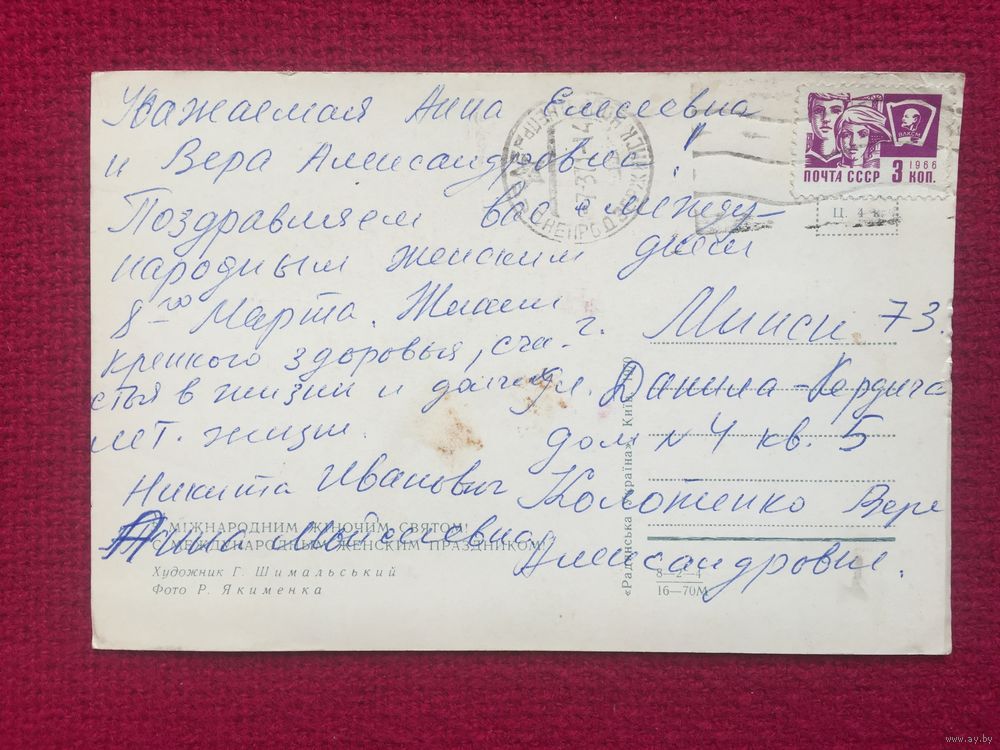 Уважаемая Анна Елисеевна
и Вера Александровна!
Поздравляем вас с между-
народным женским днем
8го Марта. Желаем
крепкого здоровья, сча-
стья в жизни и долгих
лет жизни.
Никита Иванович
Анна Моисеевна
З МІЖНАРОДНИМ ЖІНОЧИМ СВЯТОМ!
С МЕЖДУНАРОДНЫМ ЖЕНСКИМ ПРАЗДНИКОМ!
Художник Г. Шимальський
Фото Р. Якименка
«Радянська Україна» Київ
8—2—4
16—70М
ПОЧТА СССР 3 КОП.
1966
ВЛКСМ
Ц. 4 к.
ДНЕПРОДЗЕРЖИНСК
г. Минск 73.
ул. Данила-Сердича
дом № 4 кв. 5
Колотенко Вере
Александровне.
www.ay.by